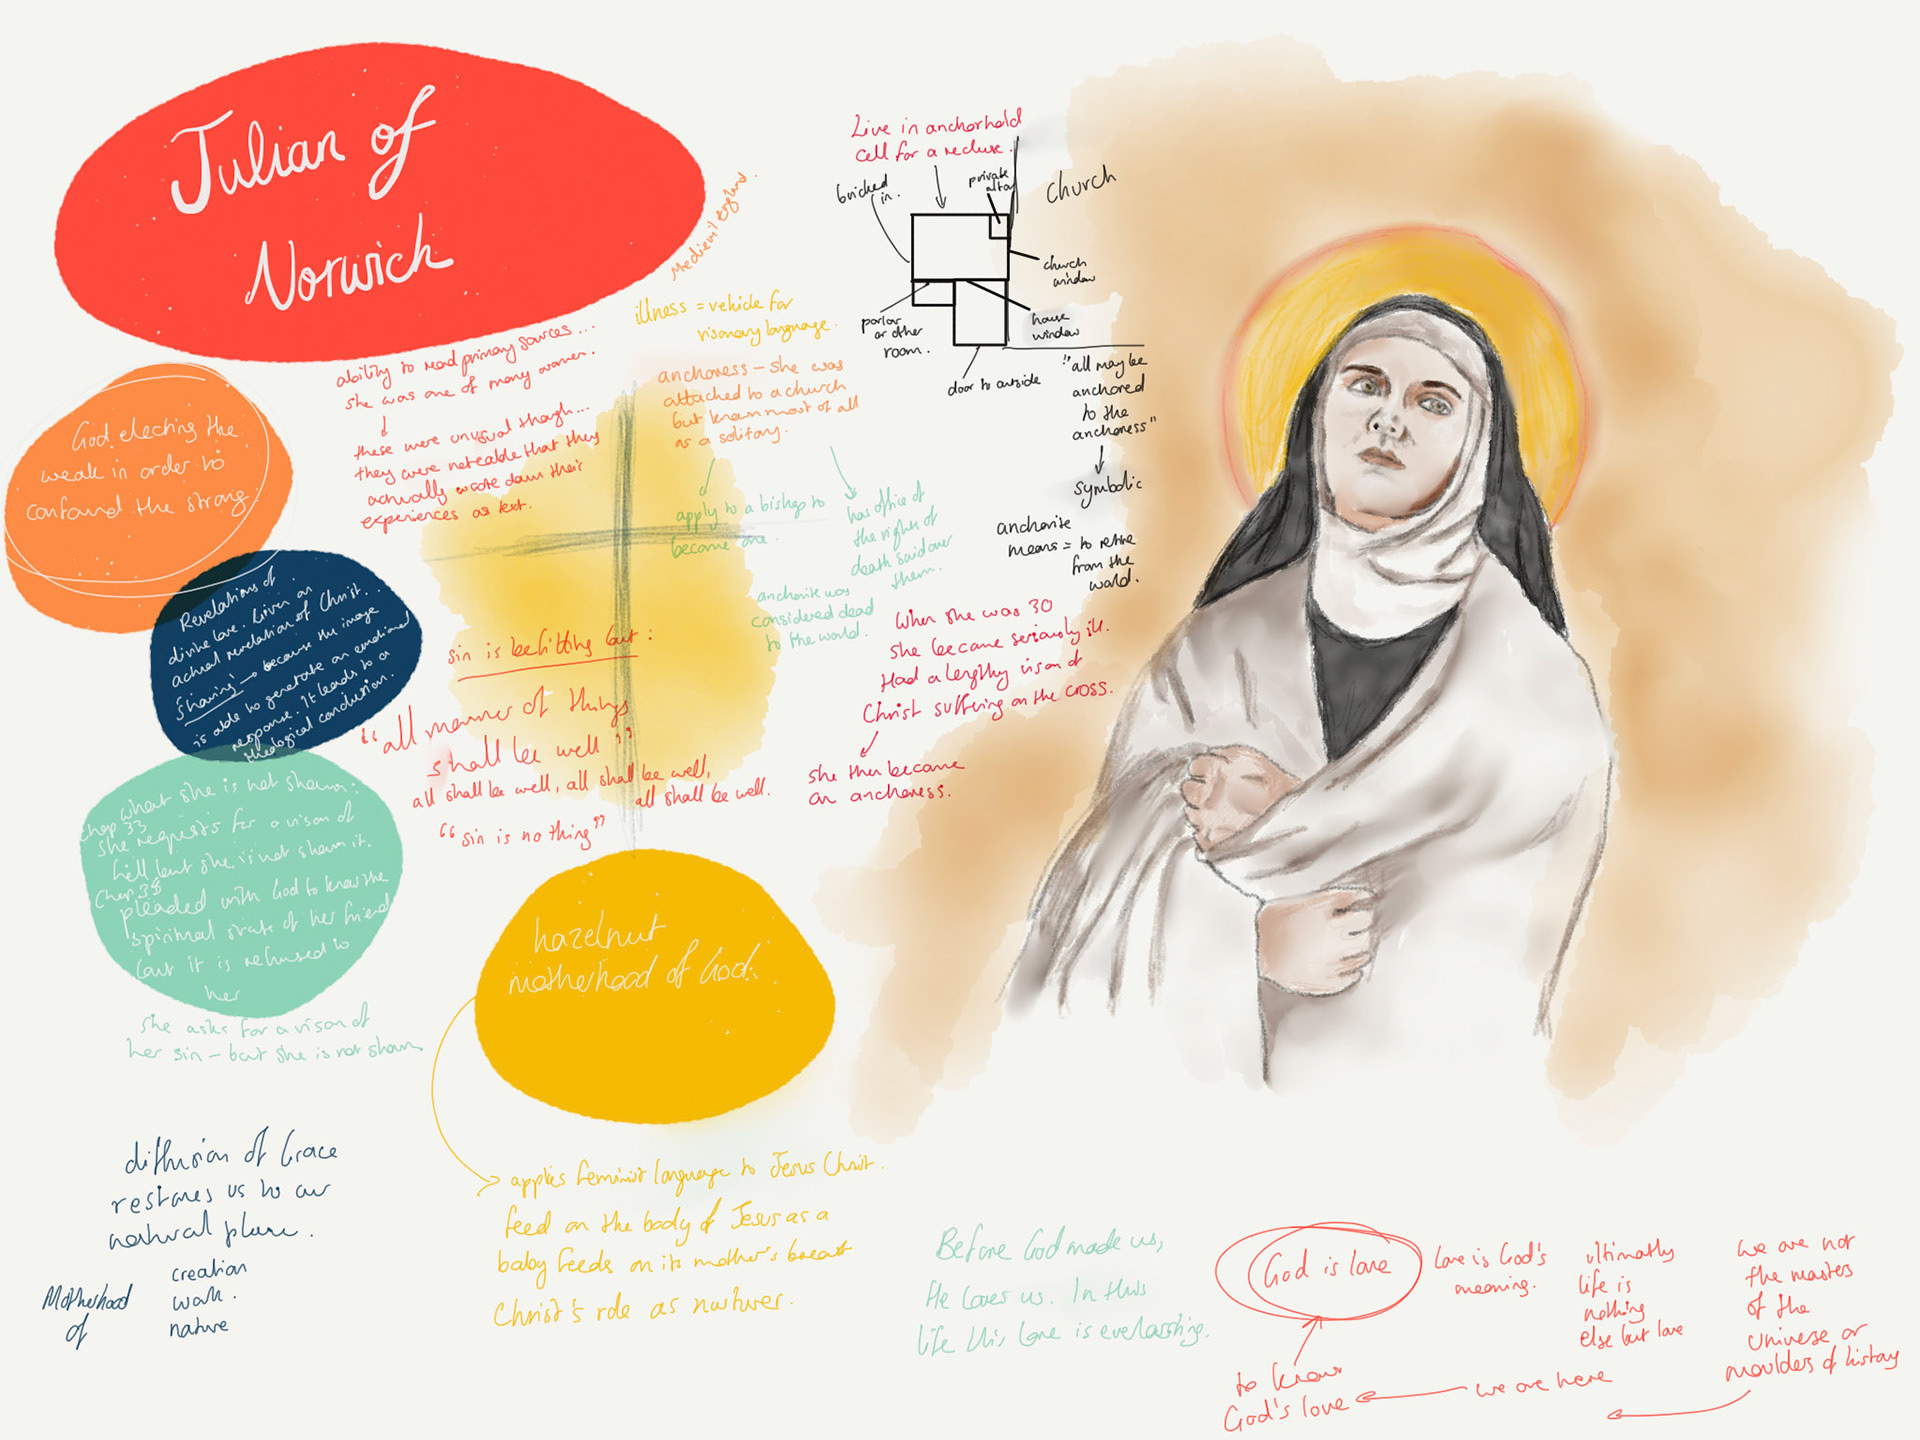 Julian of
Norwich
Medievil England.
ability to read primary sources...
she was one of many women.
these were unusual though...
they were noteable that they
actually wrote down their
experiences as text.
God electing the
weak in order to
confound the strong.
Revelations of
divine love. Given an
actual revelation of Christ.
'Sharing' → because the image
is able to generate an emotional
response. It leads to a
theological conclusion.
what she is not shown:
Chap 33
she requests for a vison of
hell but she is not shown it.
Chap 35
pleaded with God to know the
spiritual state of her friend
but it is refused to
her
she asks for a vison of
her sin - but she is not shown
illness = vehicle for
visionary language.
anchoress - she was
attached to a church
but known most of all
as a solitary.
apply to a bishop to
become one.
has office of
the rights of
death said over
them.
anchorite was
considered dead
to the world.
sin is befitting but:
"all manner of things
shall be well"
all shall be well, all shall be well,
all shall be well.
"sin is nothing"
Live in anchorhold
cell for a recluse.
bricked
in.
private
altar
church
church
window
house
window
parlor
or other
room.
door to outside
"all may be
anchored
to the
anchoress"
symbolic
anchorite
means = to retire
from the
world.
When she was 30
she became seriously ill.
Had a lengthy vison of
Christ suffering on the cross.
she then became
an anchoress.
hazelnut
motherhood of God:
applies feminist language to Jesus Christ.
feed on the body of Jesus as a
baby feeds on its mother's breast
Christ's role as nurturer.
diffusion of Grace
restores us to our
natural place.
Motherhood
of
creation
work.
nature
Before God made us,
He loves us. In this
life this love is everlasting.
God is love
Love is God's
meaning.
ultimatly
life is
nothing
else but love
we are not
the masters
of the
universe or
moulders of history
we are here
to know
God's love